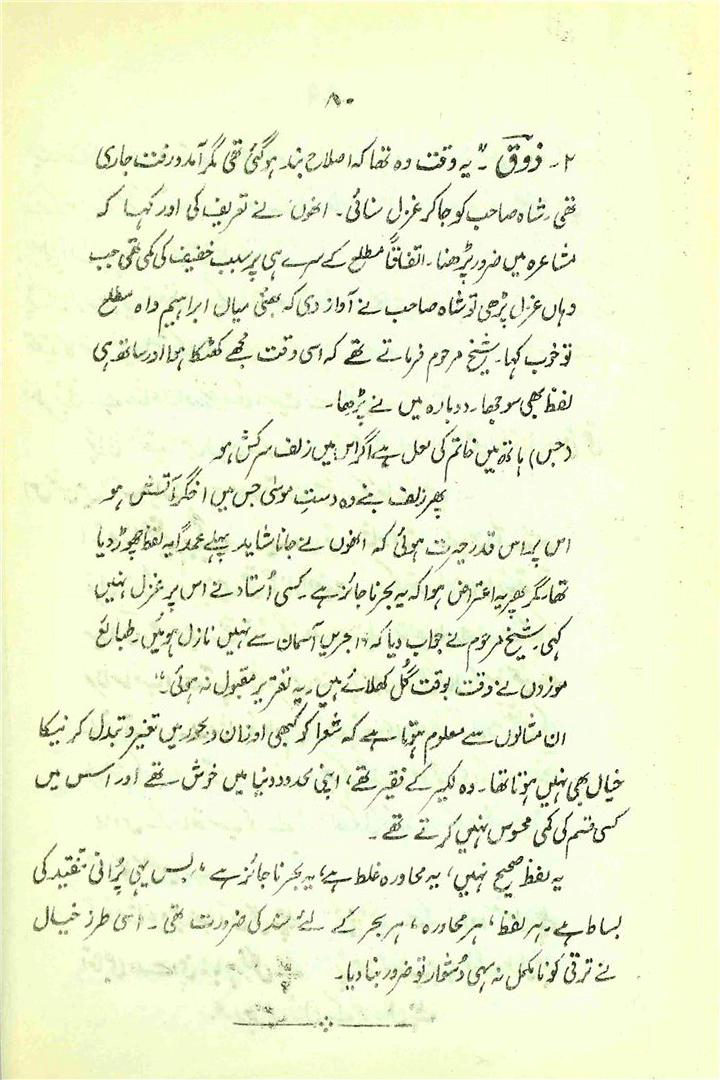 ۸۰
۲۔ ذوقؔ ۔ "یہ وقت وہ تھا کہ اصلاح بند ہوگئی تھی مگر آمد و رفت جاری
تھی۔ شاہ صاحب کو جاکر غزل سنائی۔ انھوں نے تعریف کی اور کہا کہ
مشاعرہ میں ضرور پڑھنا۔ اتفاقاً مطلع کے سرے ہی پر سبب خفیف کی کمی تھی جب
وہاں غزل پڑھی تو شاہ صاحب نے آواز دی کہ بھئی میاں ابراہیم واہ مطلع
تو خوب کہا۔ شیخ مرحوم فرماتے تھے کہ اسی وقت مجھے کھٹکا ہوا اور ساتھ ہی
لفظ بھی سوجھا۔ دوبارہ میں نے پڑھا۔
(جس) ہاتھ میں خاتم کی لعل ہے اگر اس میں زلف سرکش ہو
پھر زلف بنے وہ دستِ موسٰی جس میں اخگر آتش ہو
اس پر اس قدر حیرت ہوئی کہ انھوں نے جانا شاید پہلے عمداً یہ لفظ چھوڑ دیا
تھا۔ مگر پھر یہ اعتراض ہوا کہ یہ بحر ناجائز ہے۔ کسی اُستاد نے اس پر غزل نہیں
کہی۔ شیخ مرحوم نے جواب دیا کہ ۱۹ بحریں آسمان سے نہیں نازل ہوئیں۔ طبائع
موزوں نے وقت بوقت گُل کھلائے ہیں۔ یہ تقریر مقبول نہ ہوئی۔"
ان مثالوں سے معلوم ہوتا ہے کہ شعرا کو کبھی اوزان و بحور میں تغیر و تبدل کرنیکا
خیال بھی نہیں ہوتا تھا۔ وہ لکیر کے فقیر تھے، اپنی محدود دنیا میں خوش تھے اور اس میں
کسی قسم کی کمی محسوس نہیں کرتے تھے۔
یہ لفظ صحیح نہیں، یہ محاورہ غلط ہے، یہ بحر ناجائز ہے، بس یہی پُرانی تنقید کی
بساط ہے۔ ہر لفظ، ہر محاورہ، ہر بحر کے لئے سند کی ضرورت تھی۔ اسی طرزِ خیال
نے ترقی کو نامکمل نہ سہی دشوار تو ضرور بنا دیا۔